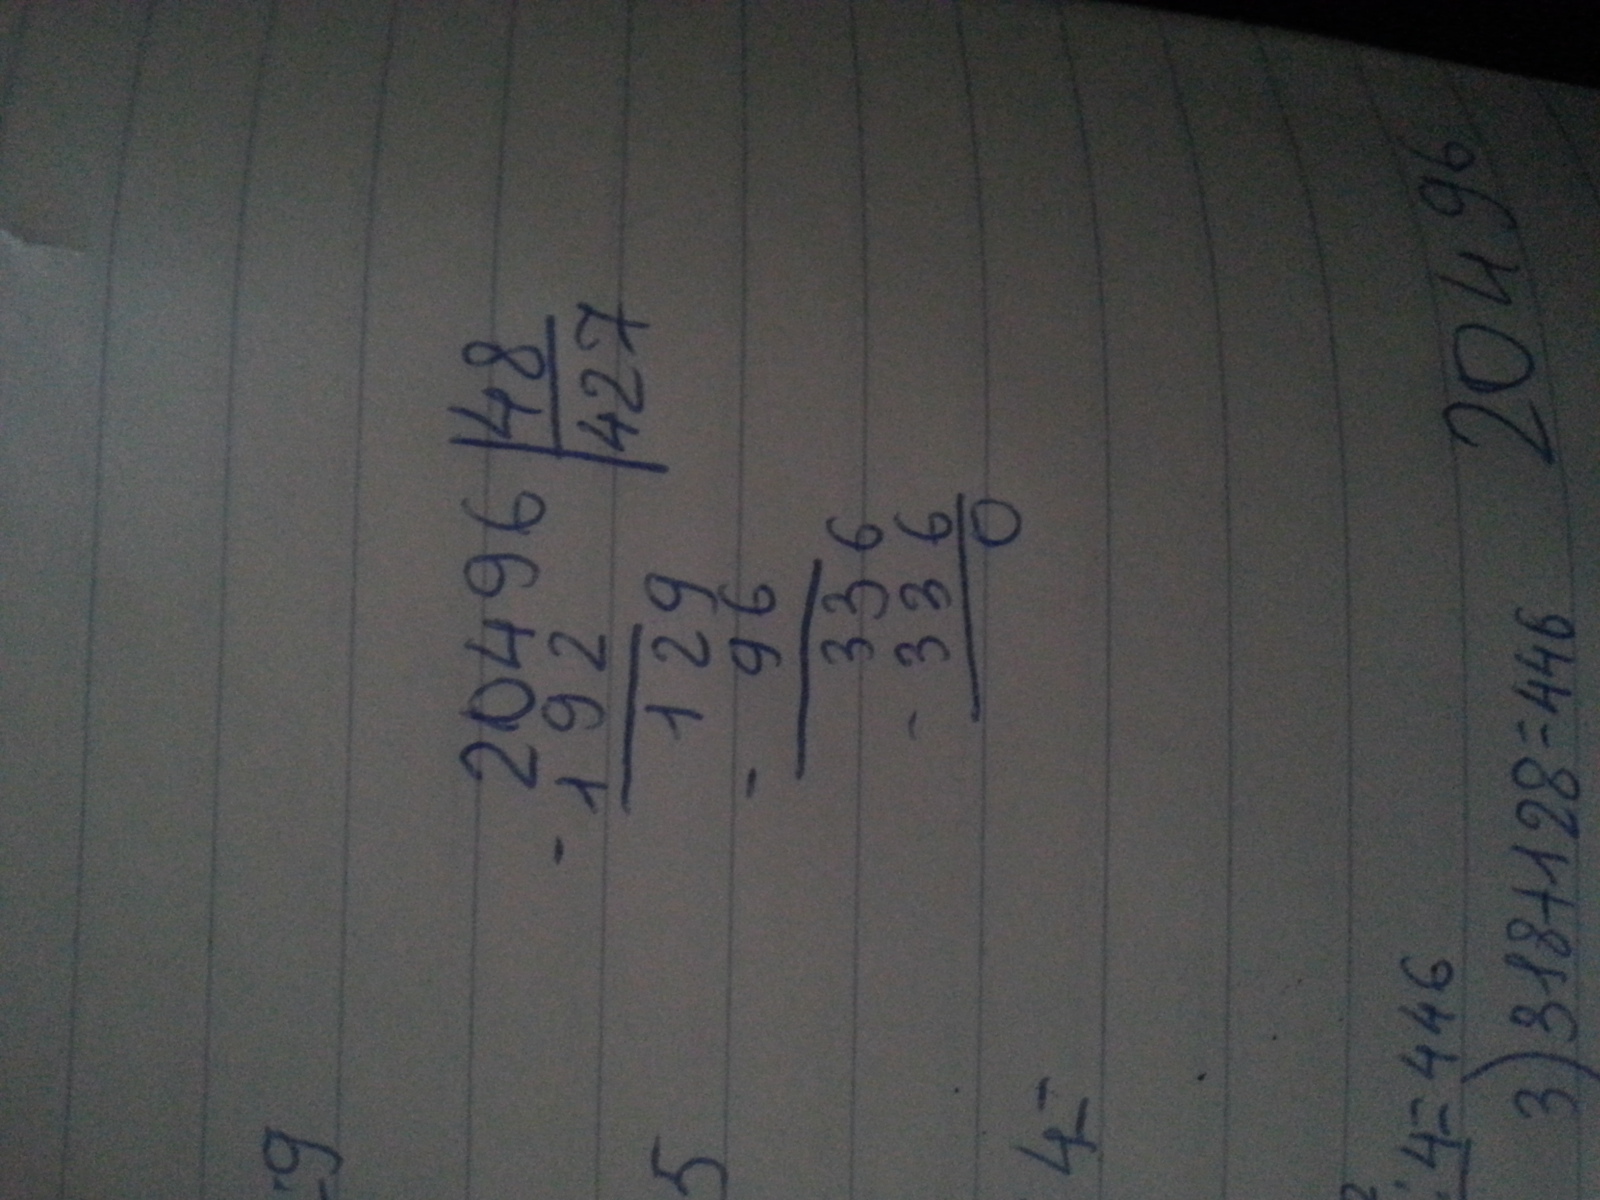 20496 48
- 192 427
129
- 96
336
- 336
0
9
5
4 -
4 = 446
3) 318+128=446 20496